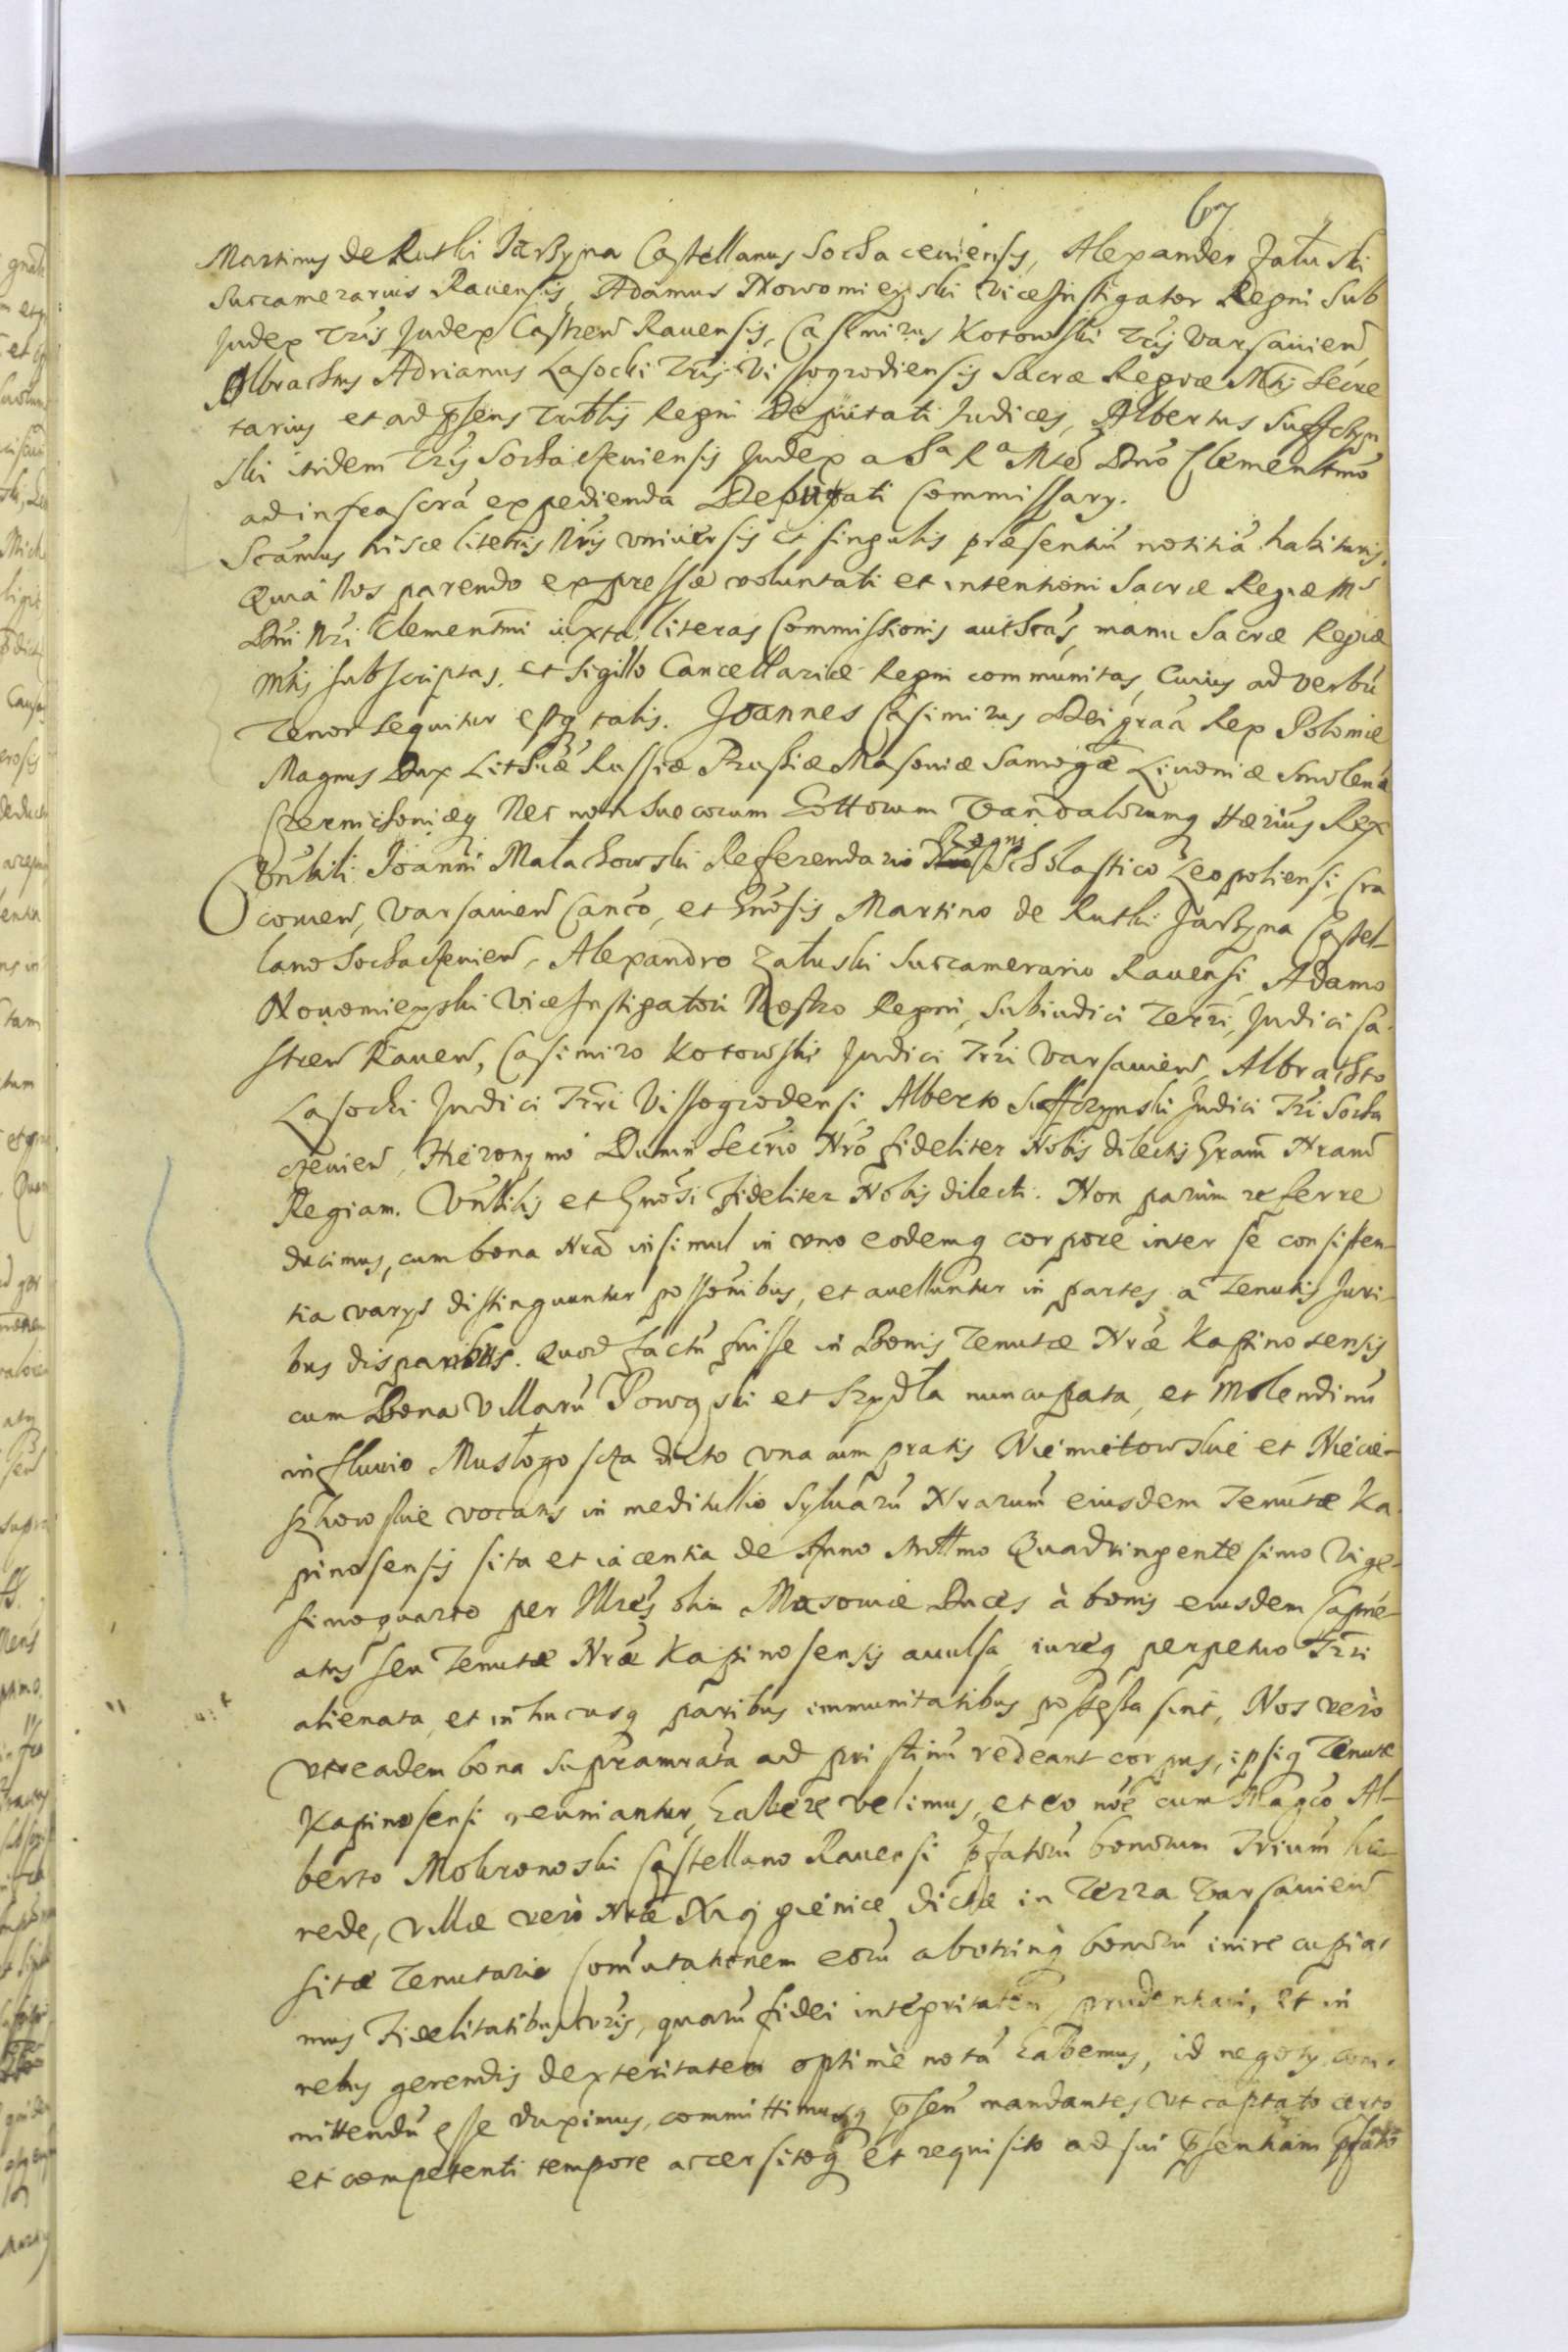 67
Martinus de Rutki Jarzyna Castellanus Sochaceviensis, Alexander Załuski
Succamerarius Ravensis, Adamus Nowomieyski ViceInstigator Regni Sub
Judex Tris Judex Castren Ravensis, Casimirus Kotowski Tris Varsavien,
Albrachtus Adrianus Lasocki Tris Vissogrodiensis Sacræ Regiæ Mtis Secre
tarius et ad psens Tribtlis Regni Deputati Judices, Albertus Suffczyn
ski itidem Tris Sochaczeviensis Judex a Sa Ra Mte Dno Clementmo
ad infrascra expedienda Deputati Commissary.
Scamus hisce literis Nris universis et singulis præsentiu notitiã habituris.
Quia Nos parendo expressæ voluntati et intentioni Sacræ Regiæ Ms
Dni Nri Clementmi iuxta literas Commissionis manu Sacræ Regiæ
Mtis subscriptas, et Sigillo Cancellariæ Regni communitas, Cuius ad verbu
Tenor sequitur estq talis. Joannes Casimirus Dei graã Rex Poloniæ
Magnus Dux Lithuæ Russiæ Prussiæ Masoviæ Samogæ Livoniæ Smolenæ
Czernichoniæq Nec non Suecorum Gottorum Vandalorumq Hærius Rex
Vnbili Joanni Małachowski Referendario Regni Scholastico Leopoliensi, Cra
covien, Varsavien Canco, et Gnosis Martino de Rutki Jarzyna Castel-
lano Sochaczevien, Alexandro Załuski Succamerario Ravensi, Adamo
Novomieyski ViceInstigatori Nostro Regni, Subiudici Terri, Judici Ca-
stren Raven, Casimiro Kotowski Judici Trri Varsavien, Albrachto
Lasocki Judici Trri Vissogrodensi, Alberto Suffczynski Judici Tri Socha
czevien, Hieronymo Dunin Secrio Nro fideliter Nobis dilectis Gram Nram
Regiam. Vnbilis et Gnosi fideliter Nobis dilecti. Non parùm referre
ducimus, cum bona Nra insimul in uno eodemq corpore inter se consisten-
tia varys distinguuntur possonibus, et avelluntur in partes a Tenutis Juri-
bus disparibus. Quod factu fuisse in Bonis Tenutæ Nræ Kapinosensis
cum Bona Villaru Powązki et Szydła nuncupata, et Molendinu
in fluvio dicto una cum pratis Niemietowskie et Niecie-
szkowskie vocatis in meditullio Sylvaru Nrarum eiusdem Tenutæ Ka-
pinosensis sita et iacentia de Anno Millmo Quadringentesimo Vige-
simoquarto per Illres olim Masoviæ Duces à bonis eiusdem Capne-
atus seu Tenutæ Nræ Kapinosensis avulsa iureq perpetuo Trri
alienata, et in hucusq paribus immunitatibus possessa sint, Nos verò
ut eadem bona supramrata ad pristinu redeant corpus, ipsiq Tenutæ
Kapinosensi reuniantur, habere velimus, et eo nõe cum Magco Al-
berto Mokronoski Castellano Ravensi pfatoru bonorum Trium hæ-
rede, Villæ verò Nræ dictæ in Terra Varsavien
sitæ Tenutario Comutationem eoru abutrinq bonoru inire cupia-
mus Fidelitatibus Vris, quaru fidei integritatem, prudentiam, et in
rebus gerendis dexteritatem optimè notã habemus, id negoty com-
mittendu esse duximus, committimusq psen mandantes ut captato certo
et competenti tempore accersitoq et requisito ad sui psentiam pfato